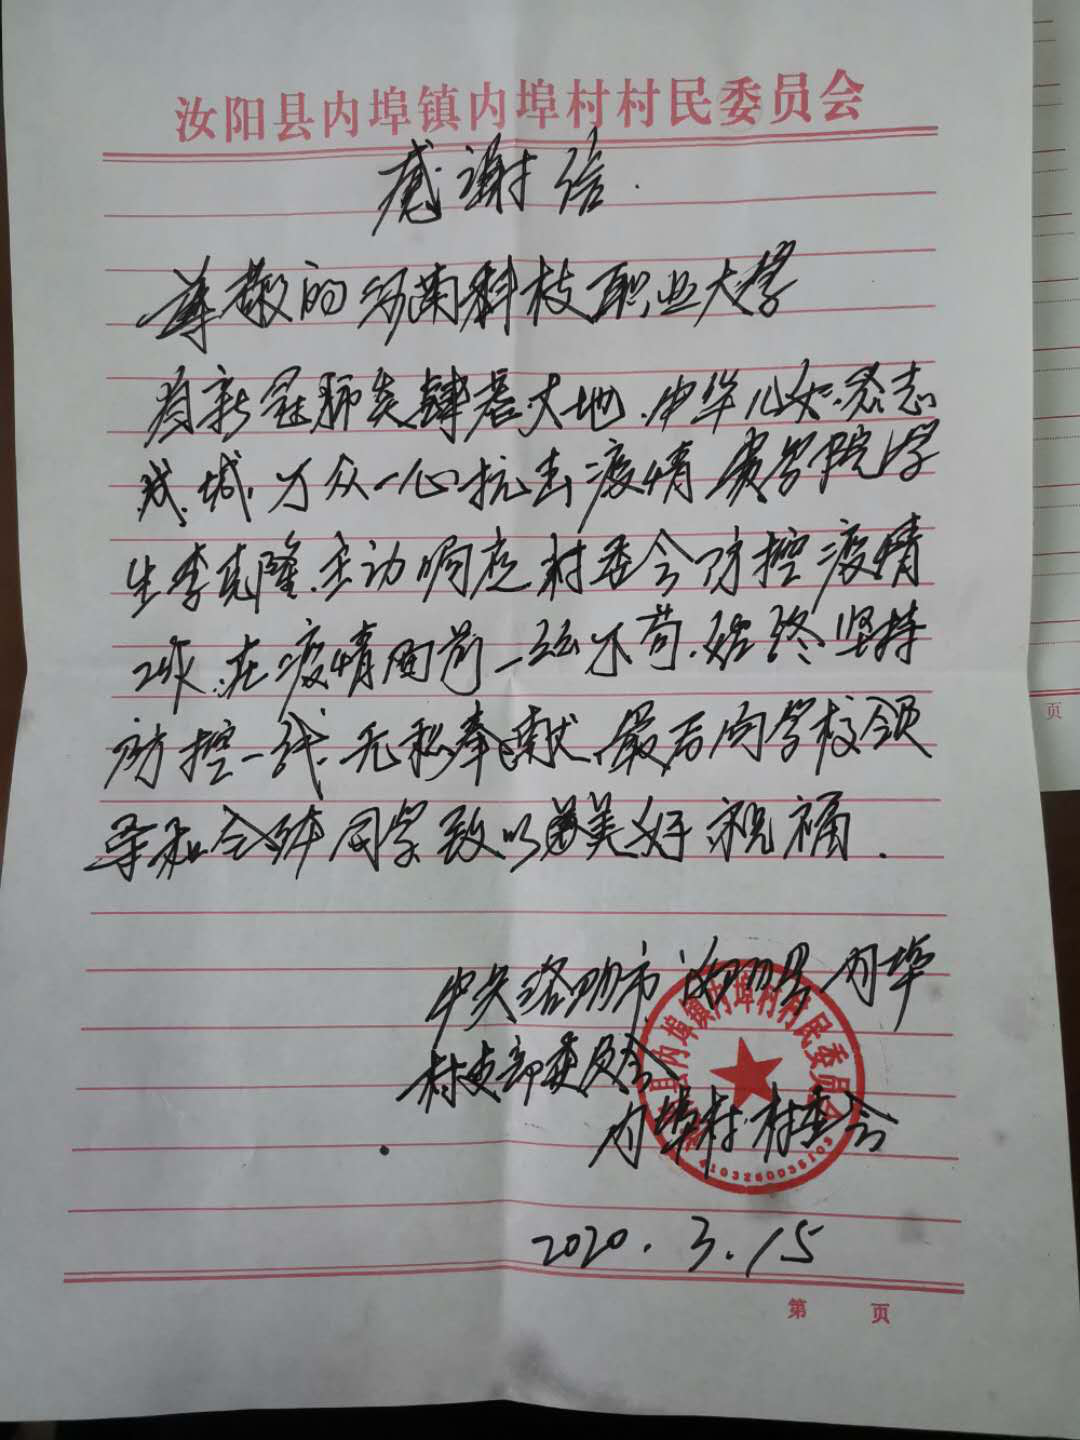 汝阳县内埠镇内埠村村民委员会
感谢信.
尊敬的河南科技职业大学
自新冠肺炎肆虐大地.中华儿女.众志
成城.万众一心抗击疫情 贵学院学
生李克隆.主动响应村委会防控疫情
工作.在疫情面前一丝不苟.始终坚持
防控一线.无私奉献.最后向学校领
导和全体同学致以最美好祝福.
中共洛阳市汝阳县内埠
村支部委员会
内埠村村委会
2020.3.15
县内埠镇内埠村村民委员会
4103260036103
第 页
页